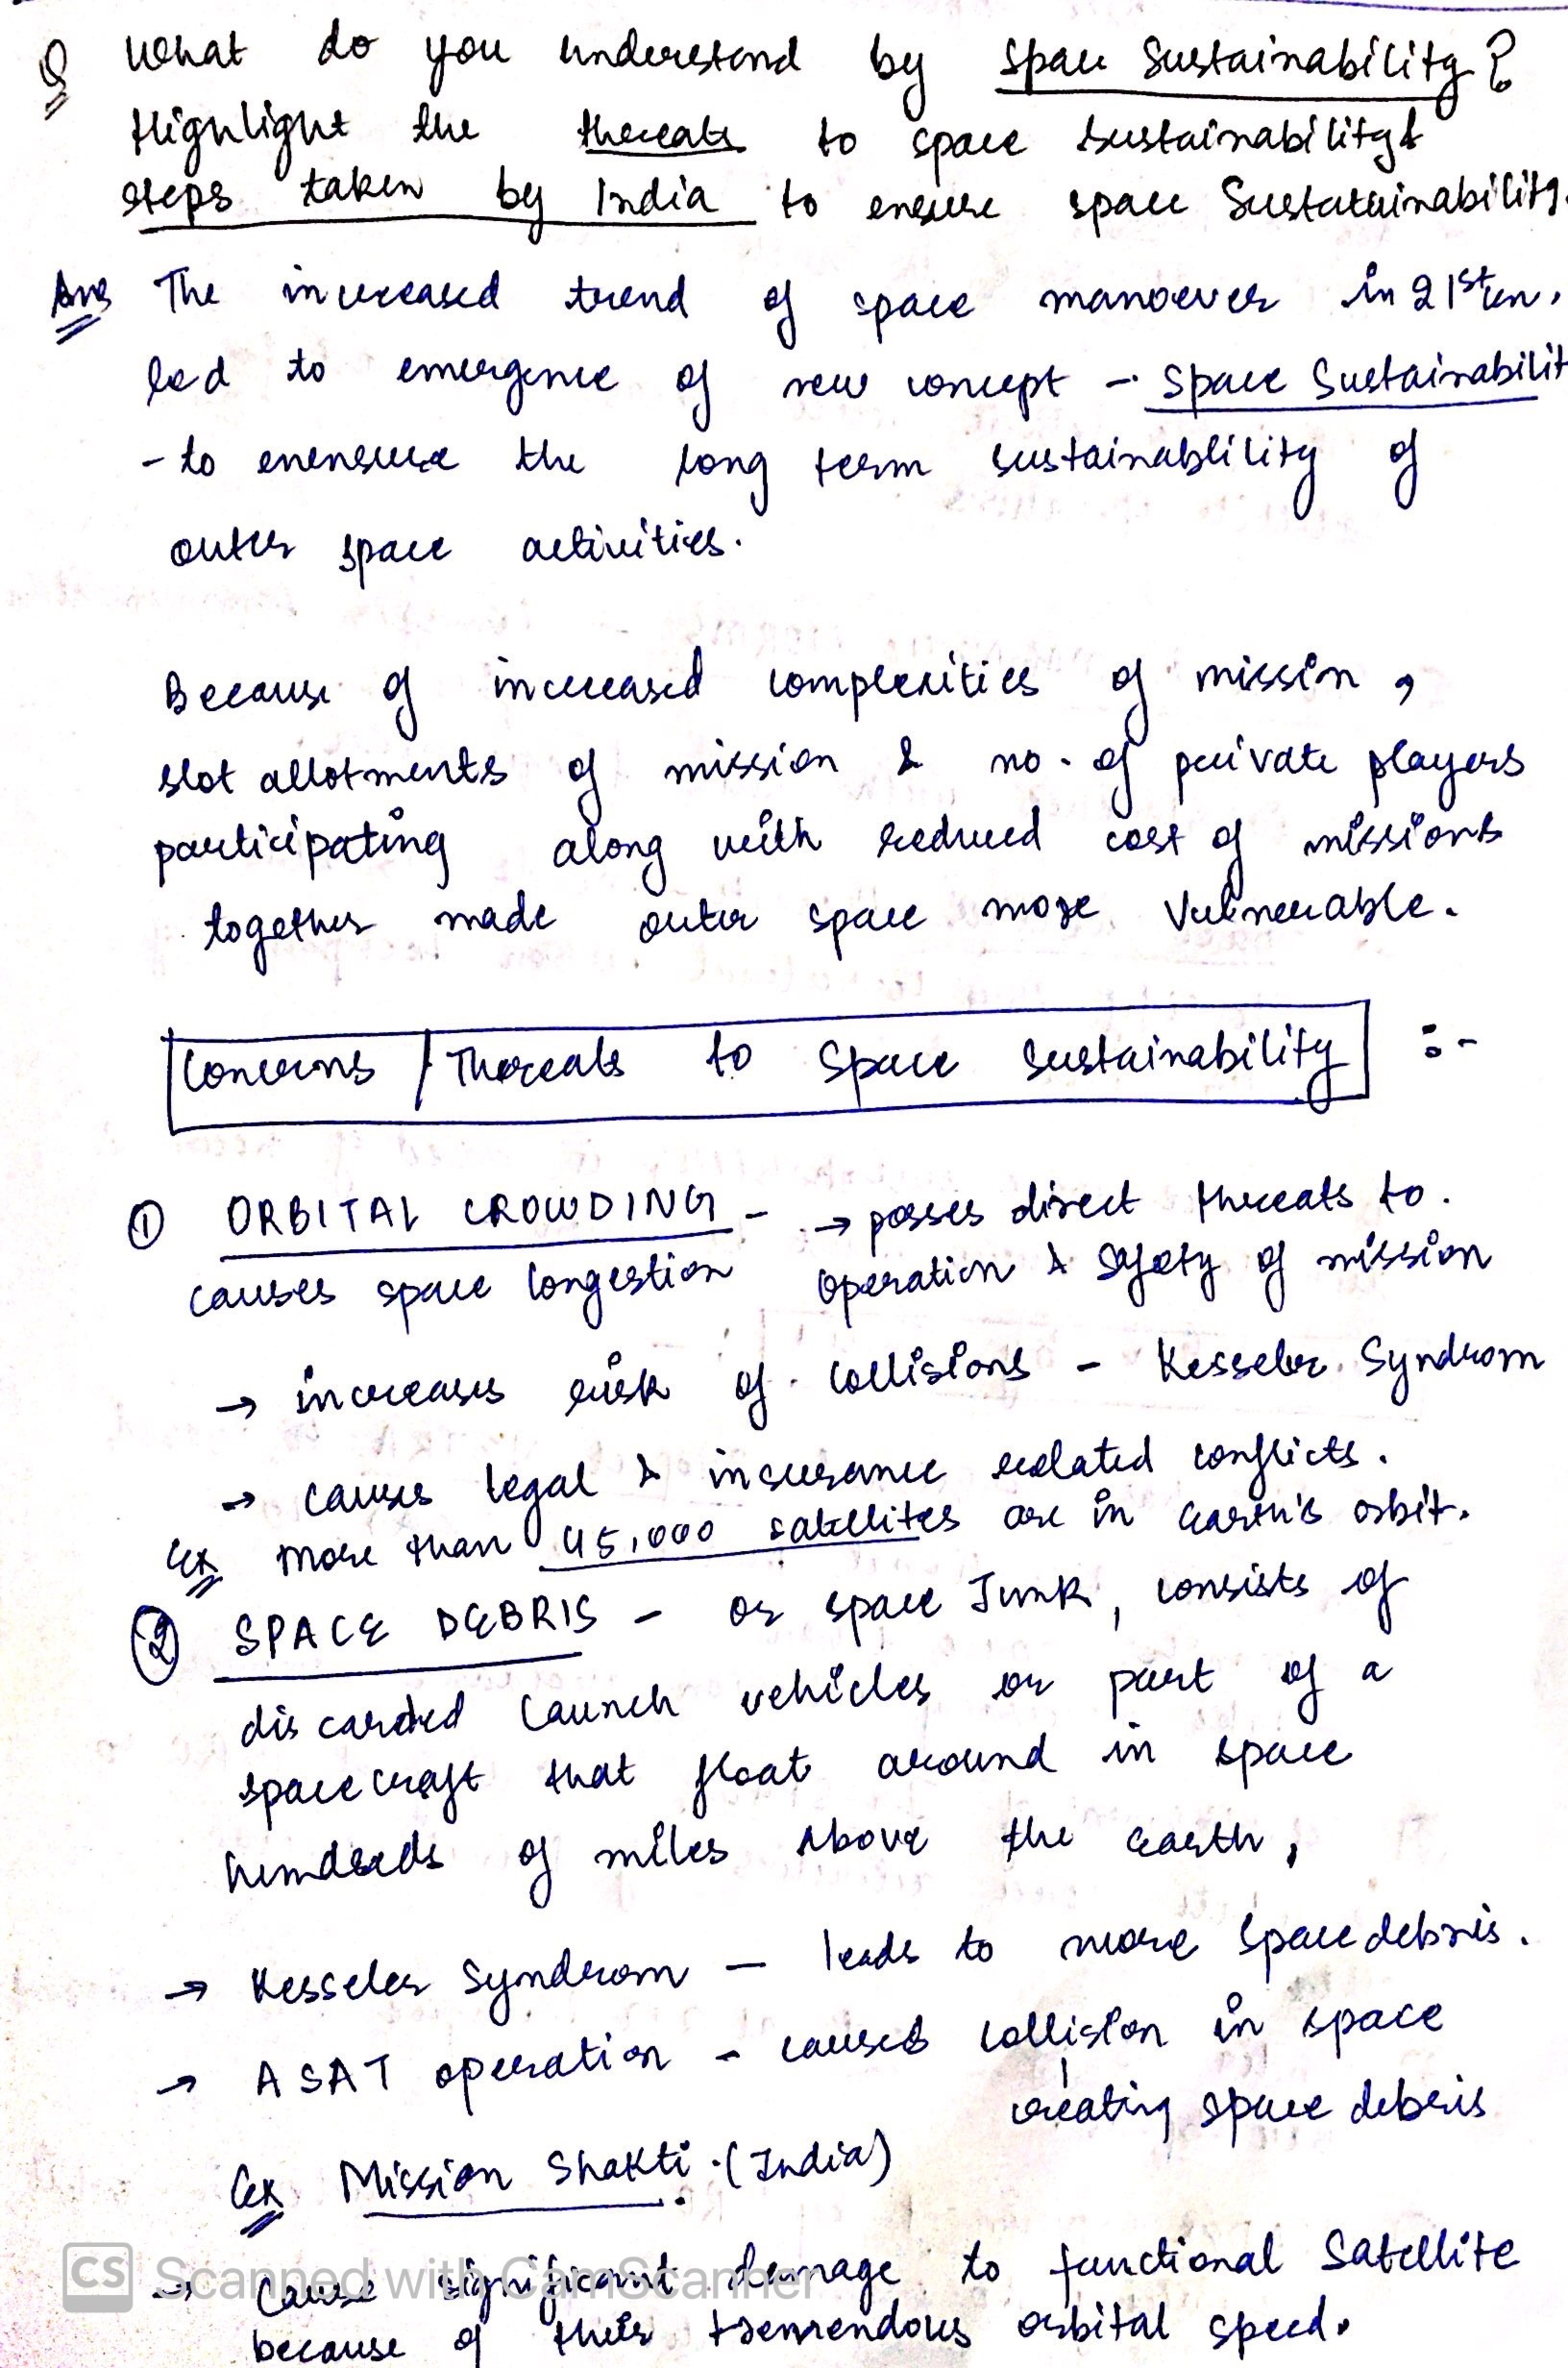 Q What do you understand by Space Sustainability?
Highlight the threats to space sustainability &
steps taken by India to ensure space Sustatainability.
Ans The increased trend of space manoever in 21st cen.
led to emergence of new concept - Space Sustainabilit
- to enensure the long term sustainablility of
outer space activities.
Because of increased complexities of mission,
slot allotments of mission & no. of private players
participating along with reduced cost of missions
together made outer space more Vulnerable.
Concerns / Threats to Space Sustainability :-
① ORBITAL CROWDING - → posses direct threats to
causes space Congestion operation & Safety of mission
→ increases risk of collisions - Kesseler Syndrom
→ causes legal & insurance related conflicts.
Ex More than 45,000 satellites are in Earth's orbit.
② SPACE DEBRIS - or space Junk, consists of
discarded launch vehicles or part of a
spacecraft that float around in space
hundreds of miles above the earth,
→ Kesseler Syndrom - leads to more Space debris.
→ ASAT operation - causes collision in space
creating space debris
Ex Mission Shakti (India)
→ Cause significant damage to functional Satellite
because of their tremendous orbital speed.
CS Scanned with CamScanner